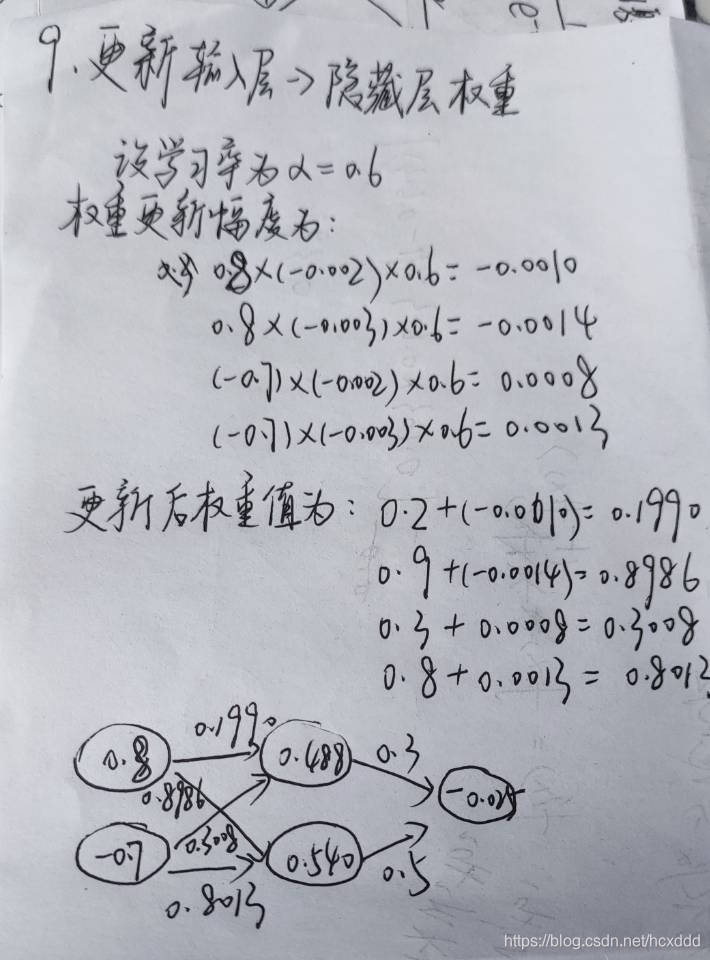 9、更新输入层→隐藏层权重
设学习率为α=0.6
权重更新幅度为:
0.8×(-0.002)×0.6=-0.0010
0.8×(-0.003)×0.6=-0.0014
(-0.7)×(-0.002)×0.6=0.0008
(-0.7)×(-0.003)×0.6=0.0013
更新后权重值为: 0.2+(-0.0010)=0.1990
0.9+(-0.0014)=0.8986
0.3+0.0008=0.3008
0.8+0.0013=0.8013
0.8 0.1990 0.488 0.3
0.8986 -0.025
-0.7 0.3008 0.540 0.5
0.8013
https://blog.csdn.net/hcxddd